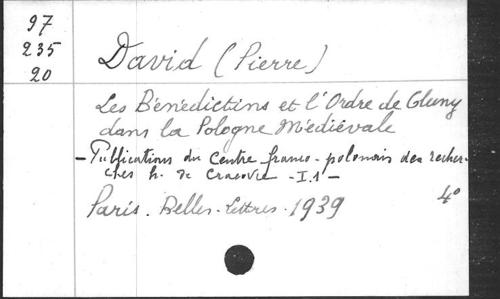 97
235
20
David (Pierre)
Les Bénédictins et l'Ordre de Cluny
dans la Pologne Médiévale
- Publications du Centre franco-polonais des recher-
ches h. de Cracovie - I.1 -
Paris. Belles-Lettres. 1939 4°